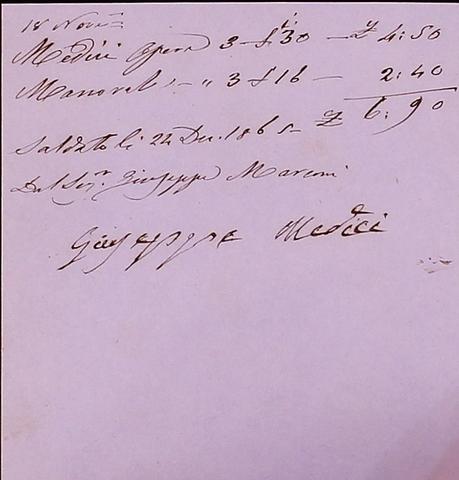 18 Nov.
Medici Opere 3 £ 1:30 — £ 4:50
Manoval: — " 3 £ 16 — 2:40
£ 6:90
Saldato li 22 Dec. 1865
Dal Sig.r Giuseppe Marconi
Giuseppe Medici